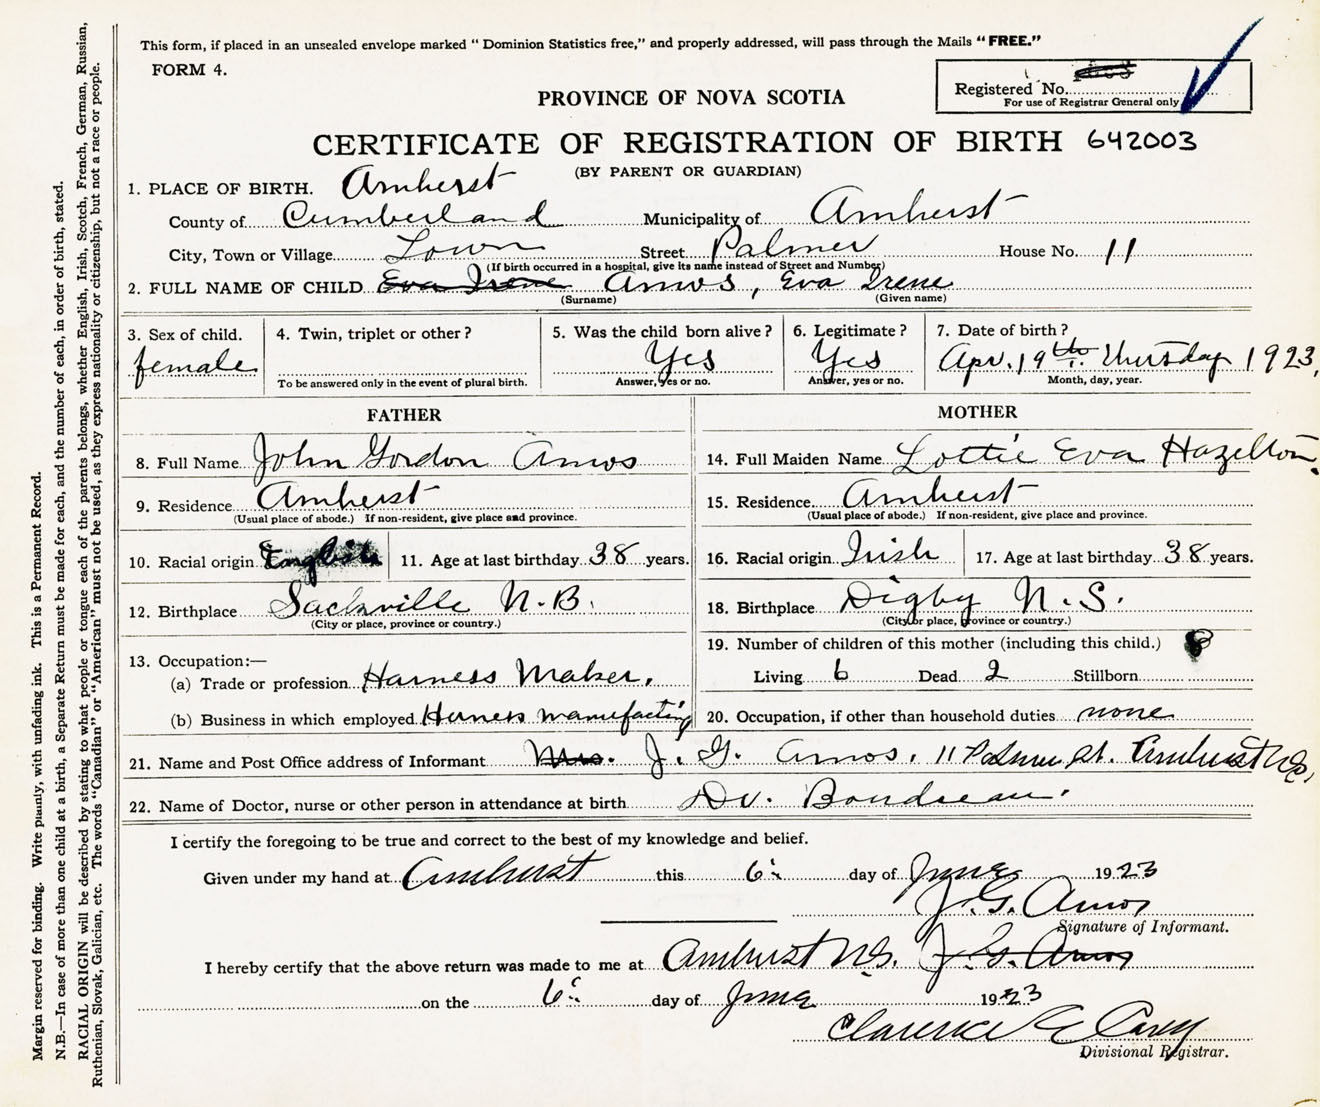 This form, if placed in an unsealed envelope marked " Dominion Statistics free," and properly addressed, will pass through the Mails "FREE."
FORM 4.
Registered No.
For use of Registrar General only
PROVINCE OF NOVA SCOTIA
CERTIFICATE OF REGISTRATION OF BIRTH 642003
(BY PARENT OR GUARDIAN)
1. PLACE OF BIRTH. Amherst
County of Cumberland Municipality of Amherst
City, Town or Village Town Street Palmer House No. 11
(If birth occurred in a hospital, give its name instead of Street and Number)
2. FULL NAME OF CHILD Eva Irene Amos, Eva Irene
(Surname) (Given name)
3. Sex of child. 4. Twin, triplet or other? 5. Was the child born alive? 6. Legitimate? 7. Date of birth?
female Yes Yes Apr. 19th. Thursday 1923,
To be answered only in the event of plural birth. Answer, yes or no. Answer, yes or no. Month, day, year.
FATHER MOTHER
8. Full Name John Gordon Amos 14. Full Maiden Name Lottie Eva Hazelton.
9. Residence Amherst 15. Residence Amherst
(Usual place of abode.) If non-resident, give place and province. (Usual place of abode.) If non-resident, give place and province.
10. Racial origin English 11. Age at last birthday 38 years. 16. Racial origin Irish 17. Age at last birthday 38 years.
12. Birthplace Sackville N.B. 18. Birthplace Digby N.S.
(City or place, province or country.) (City or place, province or country.)
19. Number of children of this mother (including this child.) 8
13. Occupation:—
(a) Trade or profession Harness Maker. Living 6 Dead 2 Stillborn
(b) Business in which employed Harness manufacting 20. Occupation, if other than household duties none
21. Name and Post Office address of Informant Mrs. J. G. Amos, 11 Palmer St. Amherst N.S,
22. Name of Doctor, nurse or other person in attendance at birth Dr. Boudreau.
I certify the foregoing to be true and correct to the best of my knowledge and belief.
Given under my hand at Amherst this 6. day of June 1923
J. G. Amos
Signature of Informant.
I hereby certify that the above return was made to me at Amherst N.S. J. G. Amos
on the 6 day of June 1923
Clarence E Casey
Divisional Registrar.
Margin reserved for binding. Write plainly, with unfading ink. This is a Permanent Record.
N.B.—In case of more than one child at a birth, a Separate Return must be made for each, and the number of each, in order of birth, stated.
RACIAL ORIGIN will be described by stating to what people or tongue each of the parents belongs, whether English, Irish, Scotch, French, German, Russian,
Ruthenian, Slovak, Galician, etc. The words "Canadian" or "American" must not be used, as they express nationality or citizenship, but not a race or people.